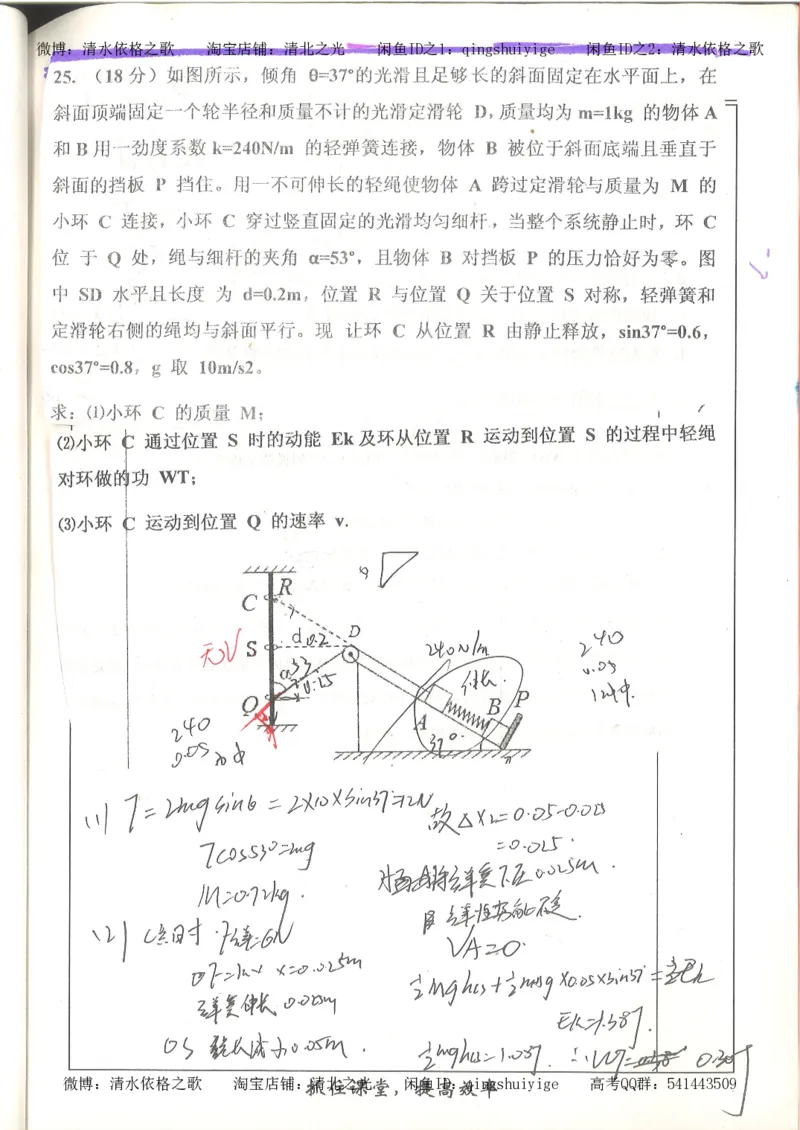 微博：清水依格之歌 淘宝店铺：清北之光 闲鱼ID之1：qingshuiyige 闲鱼ID之2：清水依格之歌
25. （18分）如图所示，倾角 θ=37°的光滑且足够长的斜面固定在水平面上，在
斜面顶端固定一个轮半径和质量不计的光滑定滑轮 D，质量均为 m=1kg 的物体 A
和 B 用一劲度系数 k=240N/m 的轻弹簧连接，物体 B 被位于斜面底端且垂直于
斜面的挡板 P 挡住。用一不可伸长的轻绳使物体 A 跨过定滑轮与质量为 M 的
小环 C 连接，小环 C 穿过竖直固定的光滑均匀细杆，当整个系统静止时，环 C
位 于 Q 处，绳与细杆的夹角 α=53°，且物体 B 对挡板 P 的压力恰好为零。图
中 SD 水平且长度 为 d=0.2m，位置 R 与位置 Q 关于位置 S 对称，轻弹簧和
定滑轮右侧的绳均与斜面平行。现 让环 C 从位置 R 由静止释放，sin37°=0.6，
cos37°=0.8，g 取 10m/s2。
求：⑴小环 C 的质量 M；
⑵小环 C 通过位置 S 时的动能 Ek 及环从位置 R 运动到位置 S 的过程中轻绳
对环做的功 WT；
⑶小环 C 运动到位置 Q 的速率 v.
R
C
S d 0.2 D
240N/m
240
0.05
无V
α 53
伸长.
Q
A B P
37°
240
0.05
(1) T=2mgsinθ=2×10×sin37=12N
Tcos53°=mg
M=0.72kg.
故△X2=0.05-0.025
=0.025.
(2) C 6N
x=0.025m
伸长 0.025m
0.05m.
VA=0.
½Mghcs+½mg×0.05×sin37=Ek
Ek=1.38J.
抓住课堂，提高效率
微博：清水依格之歌 淘宝店铺：清北之光 闲鱼ID：qingshuiyige 高考QQ群：541443509